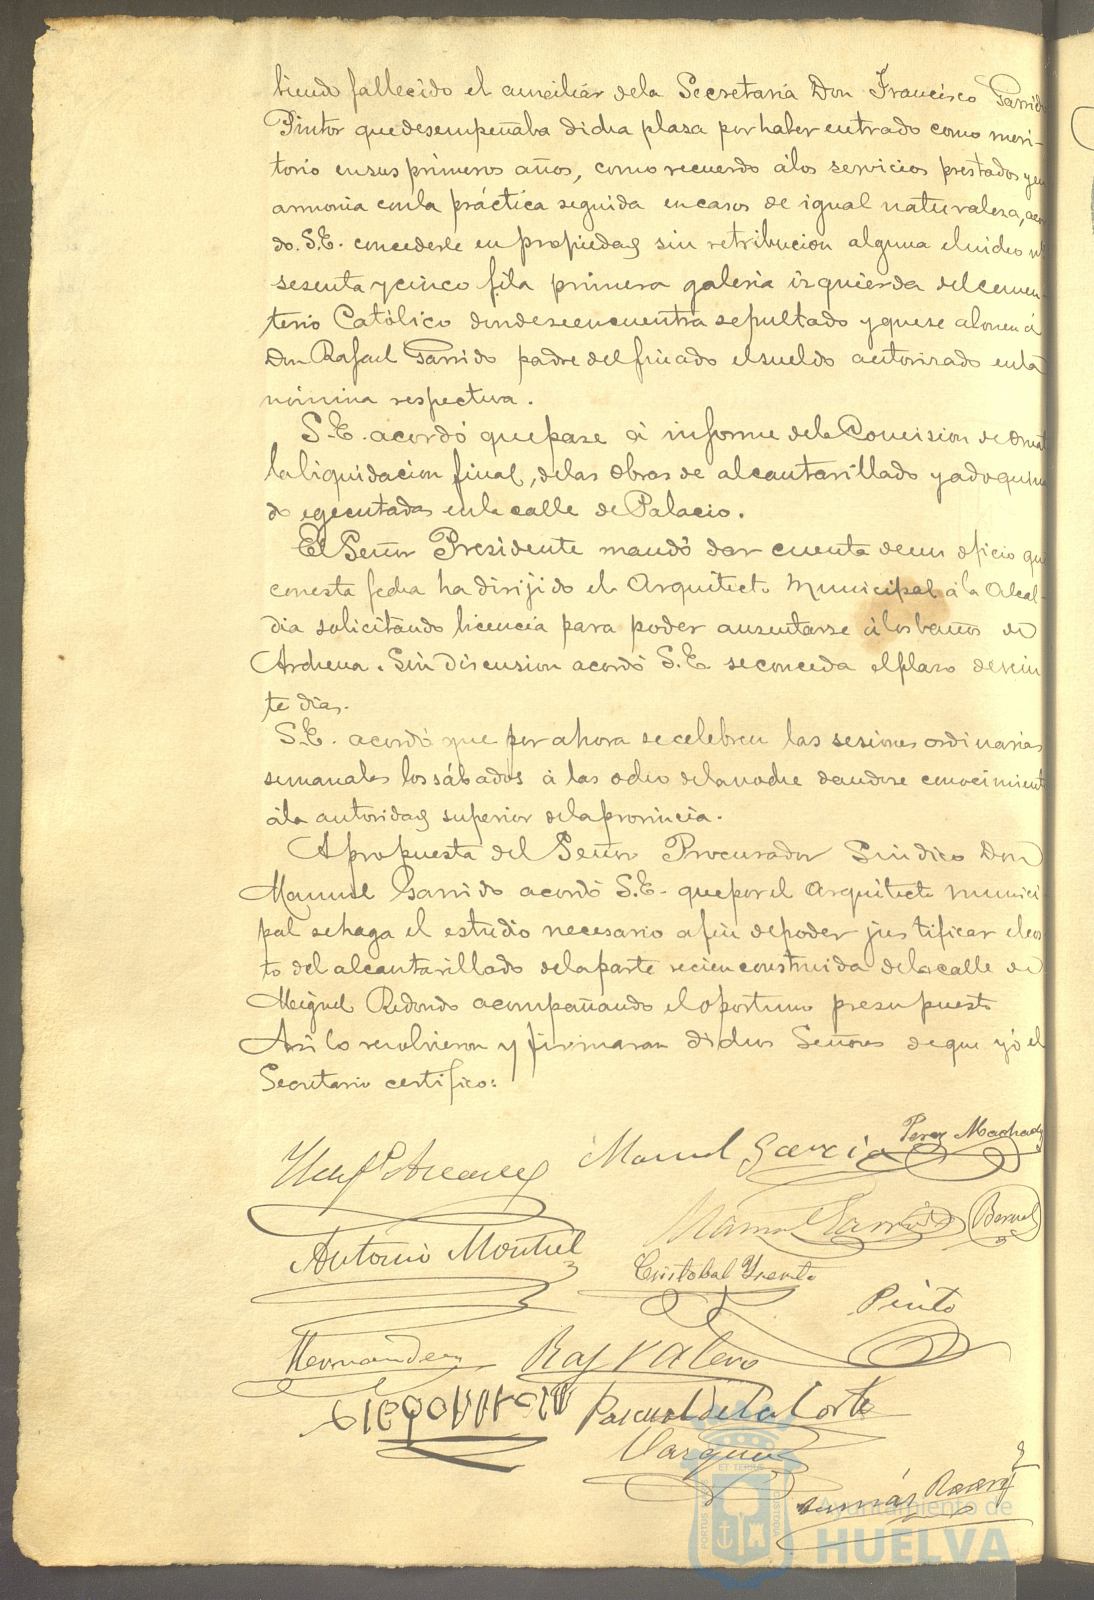 biendo fallecido el auxiliar dela Secretaria Don Francisco Garrido
Pintor que desempeñaba dicha plaza por haber entrado como meri-
torio en sus primeros años, como recuerdo á los servicios prestados y en
armonia con la práctica seguida en casos de igual naturaleza, acor
do S.E. concederle en propiedad sin retribucion alguna el nicho nº
sesenta y cinco fila primera galeria izquierda del cemen-
terio Católico donde se encuentra sepultado y que se abonen á
Don Rafael Garrido padre del finado el sueldo autorizado en la
nómina respectiva.
S.E. acordó que pase á informe dela Comision de Ornato
la liquidacion final, de las obras de alcantarillado y adoquina
do egecutadas en la calle de Palacio.
El Señor Presidente mandó dar cuenta de un oficio que
con esta fecha ha dirijido el Arquitecto Municipal á la Alcal-
dia solicitando licencia para poder ausentarse á los baños de
Archena. Sin discusion acordó S.E. se conceda el plazo de vein
te dias.
S.E. acordó que por ahora se celebren las sesiones ordinarias
semanales los sábados á las ocho de la noche dandose conocimiento
á la autoridad superior de la provincia.
A propuesta del Señor Procurador Sindico Don
Manuel Garrido acordó S.E. que por el Arquitecto munici
pal se haga el estudio necesario a fin de poder justificar el cos
to del alcantarillado de la parte recien construida de la calle de
Miguel Redondo acompañando el oportuno presupuesto
Asi lo resolvieron y firmaran dichos Señores de que yó el
Secretario certifico:
Manuel Garcia Perez Machado
Garrido Bernal
Antonio Montiel
Cristobal
Pinto
Hernandez Raf Valero
Pascual de la Corte
Vazquez
PORTUS
ET TERRAE
CUSTODIA
Ayuntamiento de
HUELVA